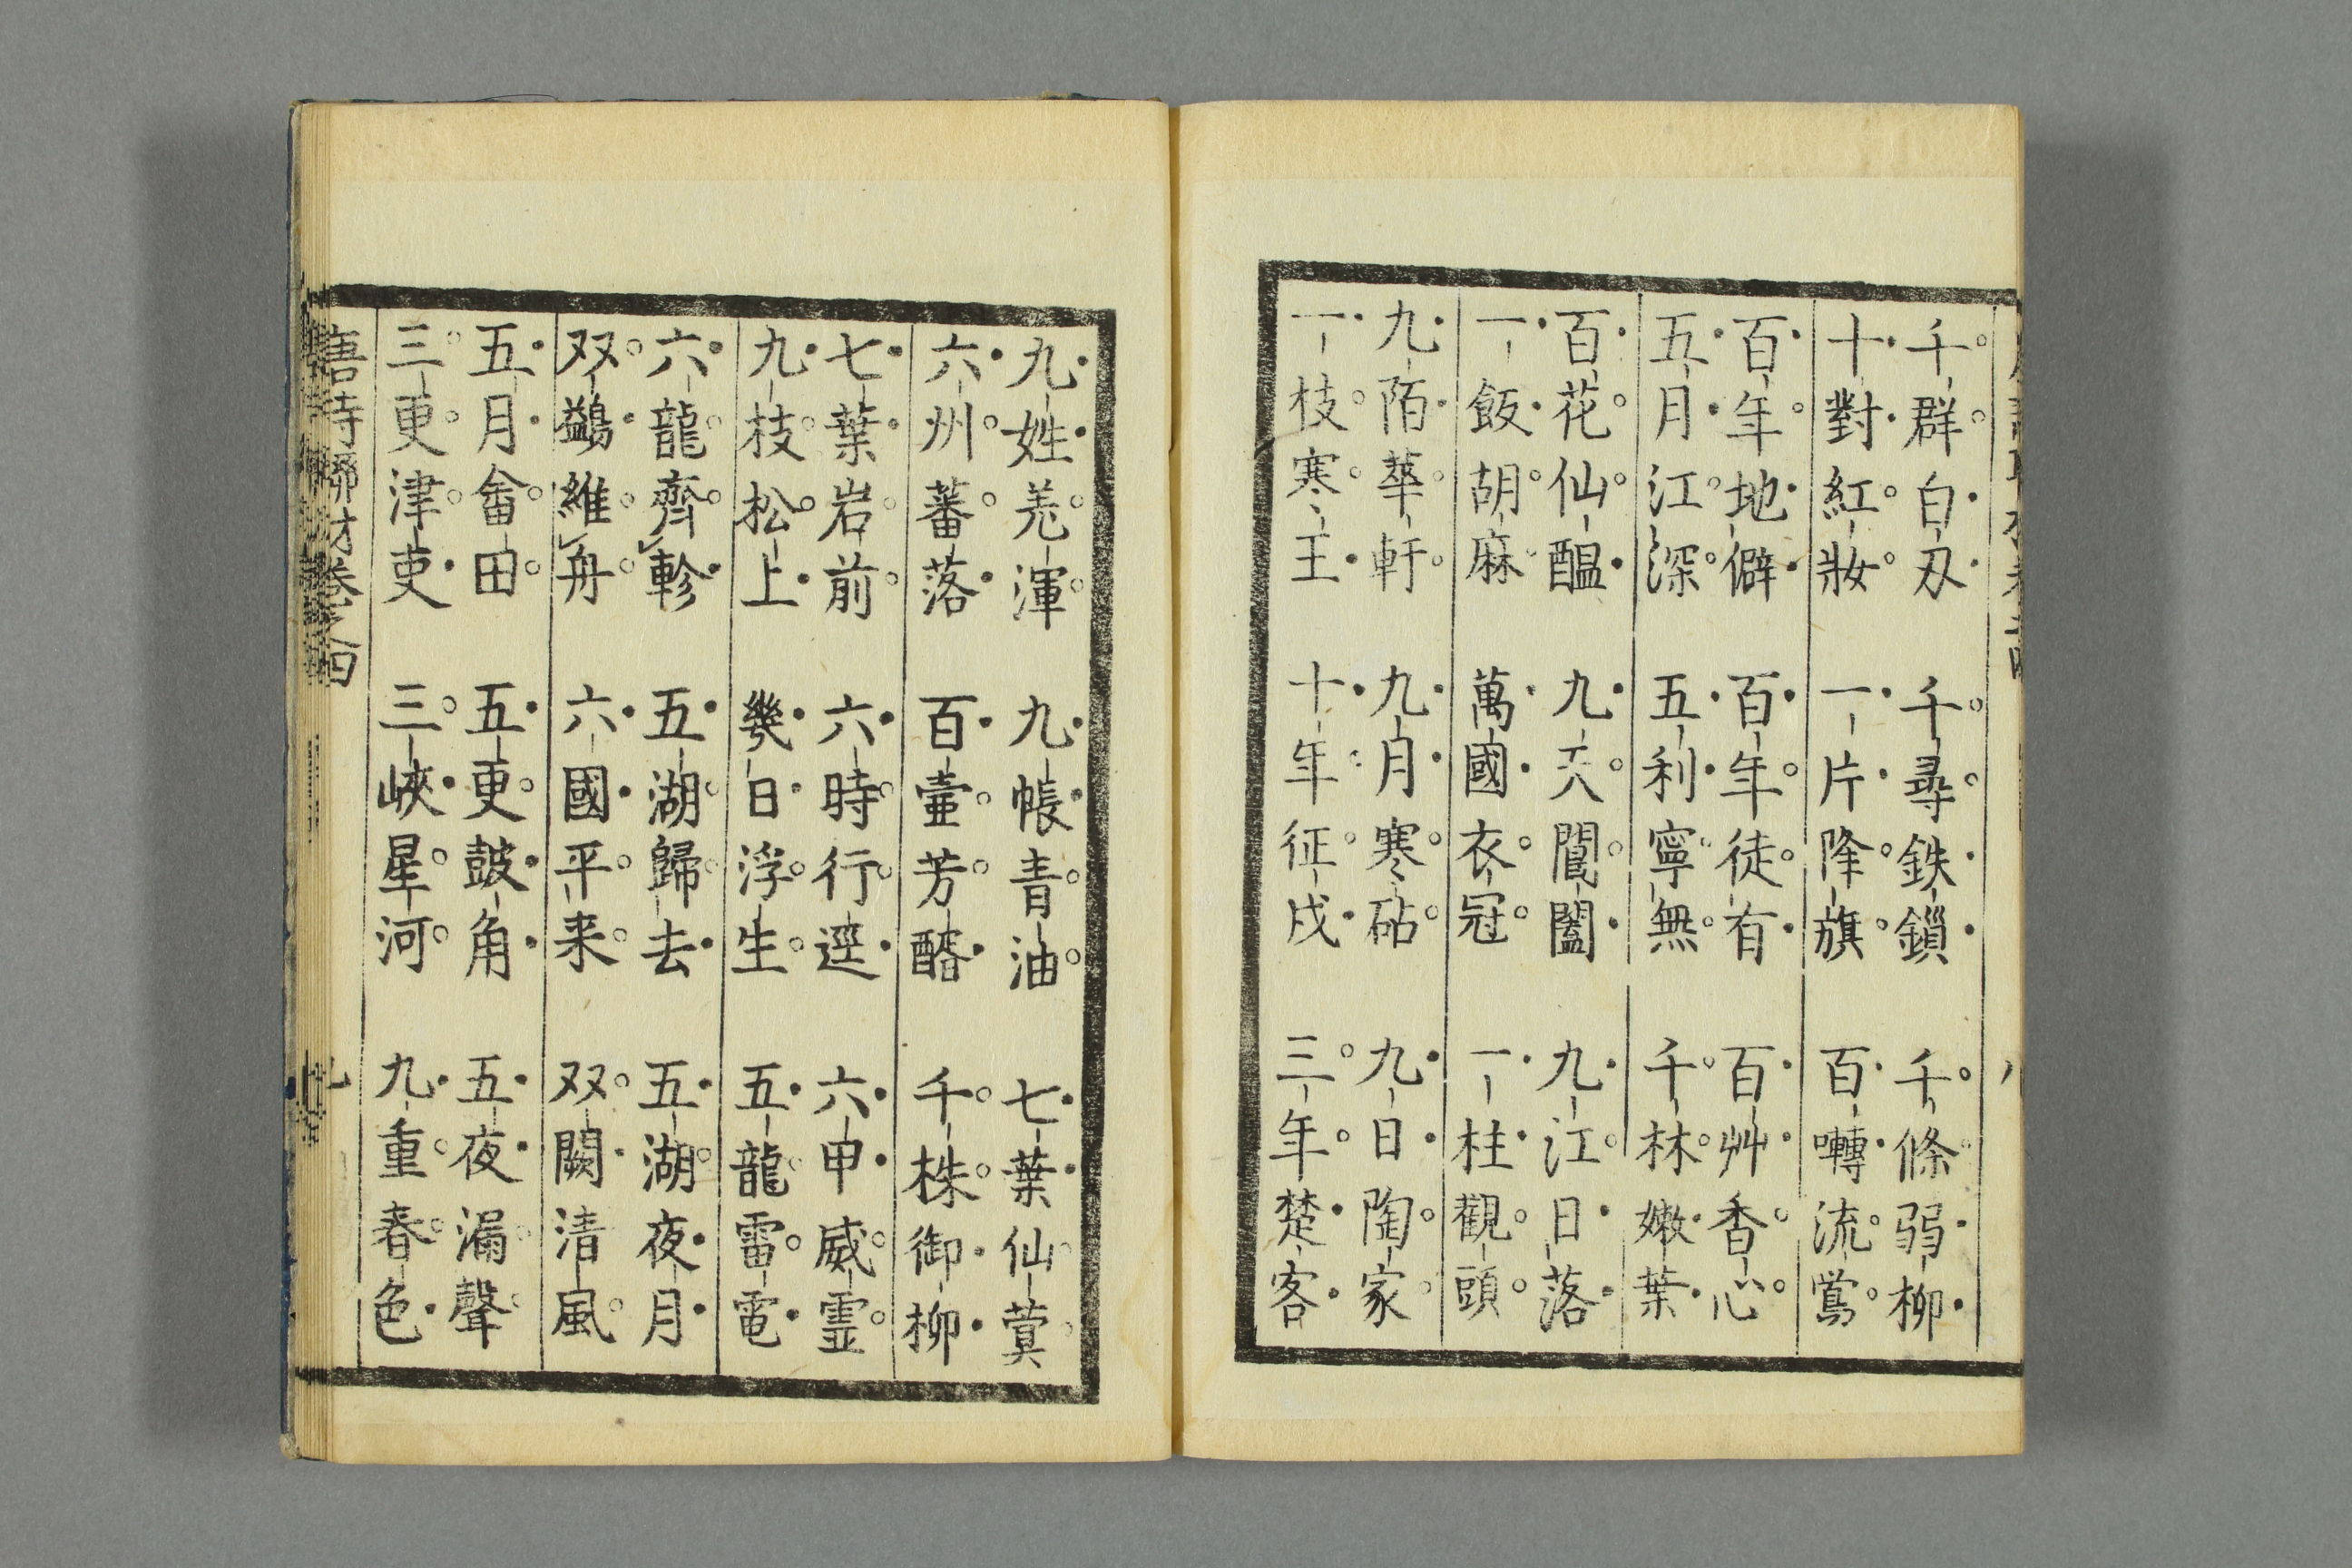 千群白刃 千尋鉄鎖 千條弱柳
十對紅妝 一片降旗 百囀流鶯
百年地僻 百年徒有 百艸香心
五月江深 五利寧無 千林嫩葉
百花仙醞 九天閶闔 九江日落
一飯胡麻 萬國衣冠 一柱觀頭
九陌華軒 九月寒砧 九日陶家
一枝寒玉 十年征戍 三年楚客
九姓羌渾 九帳青油 七葉仙蓂
六州蕃落 百壷芳醑 千株御柳
七葉岩前 六時行逕 六甲威霊
九枝松上 幾日浮生 五龍雷電
六龍齊軫 五湖歸去 五湖夜月
双鷁維舟 六國平来 双闕清風
五月畬田 五更鼓角 五夜漏聲
三更津吏 三峽星河 九重春色
唐詩聯材卷之四